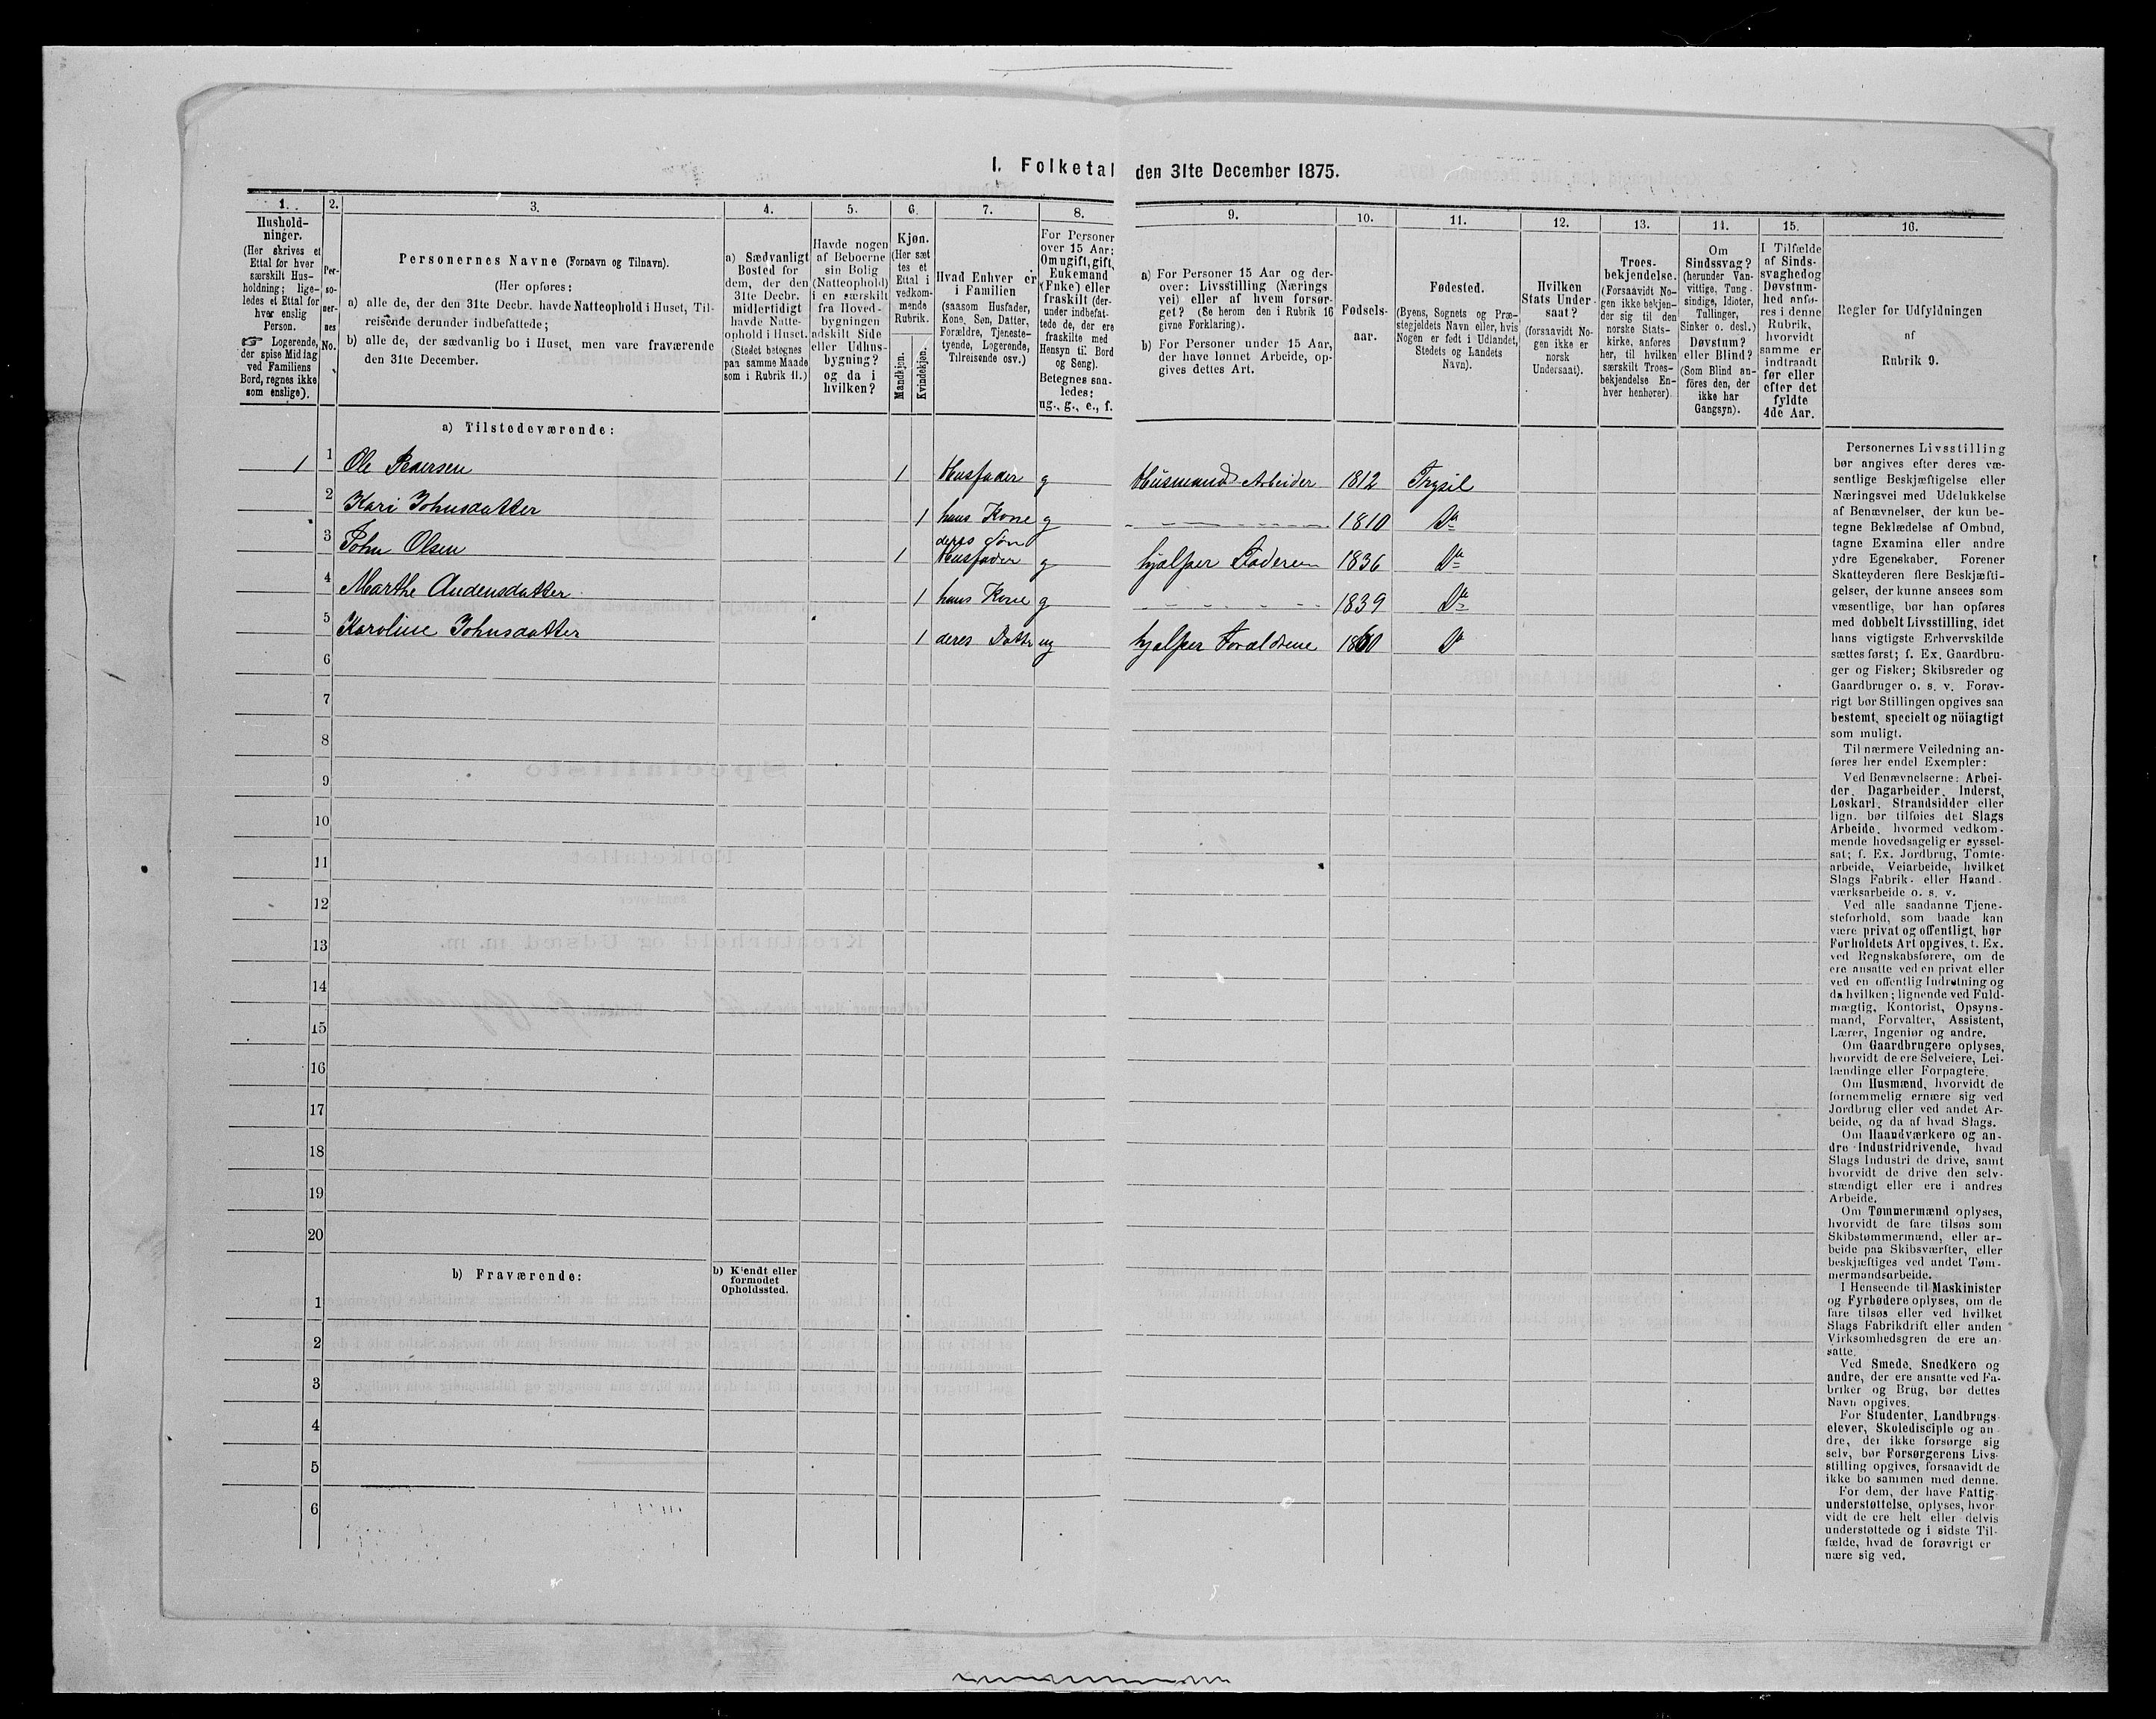 I. Folketal den 31te December 1875.
1.
Hushold-
ninger.
(Her skrives et
Ettal for hver
særskilt Hus-
holdning; lige-
ledes et Ettal for
hver enslig
Person.
☞ Logerende,
der spise Middag
ved Familiens
Bord, regnes ikke
som enslige).
2.
Per-
so-
ner-
nes
No.
3.
Personernes Navne (Fornavn og Tilnavn).
(Her opføres:
a) alle de, der den 31te Decbr. havde Natteophold i Huset, Til-
reisende derunder indbefattede;
b) alle de, der sædvanlig bo i Huset, men vare fraværende
den 31te December.
4.
a) Sædvanligt
Bosted for
dem, der den
31te Decbr.
midlertidigt
havde Natte-
ophold i Huset.
(Stedet betegnes
paa samme Maade
som i Rubrik 11.)
5.
Havde nogen
af Beboerne
sin Bolig
(Natteophold)
i en særskilt
fra Hoved-
bygningen
adskilt Side
eller Udhus-
bygning?
og da i
hvilken?
6.
Kjøn.
(Her sæt
tes et
Ettal i
vedkom-
mende
Rubrik.
Mandkjøn.
Kvindekjøn.
7.
Hvad Enhver er
i Familien
(saasom Husfader,
Kone, Søn, Datter,
Forældre, Tjeneste-
tyende, Logerende,
Tilreisende osv.)
8.
For Personer
over 15 Aar:
Om ugift, gift,
Enkemand
(Enke) eller
fraskilt (der-
under indbefat-
tede de, der ere
fraskilte med
Hensyn til Bord
og Seng).
Betegnes saa-
ledes:
ug., g., e., f.
9.
a) For Personer 15 Aar og der-
over: Livsstilling (Nærings
vei) eller af hvem forsør-
get? (Se herom den i Rubrik 16
givne Forklaring).
b) For Personer under 15 Aar,
der have lønnet Arbeide, op-
gives dettes Art.
10.
Fødsels-
aar.
11.
Fødested.
(Byens, Sognets og Præ-
stegjeldets Navn eller, hvis
Nogen er født i Udlandet,
Stedets og Landets
Navn).
12.
Hvilken
Stats Under-
saat?
(forsaavidt No-
gen ikke er
norsk
Undersaat).
13.
Troes-
bekjendelse.
(Forsaavidt No-
gen ikke bekjen-
der sig til den
norske Stats-
kirke, anføres
her, til hvilken
særskilt Troes-
bekjendelse En-
hver henhører).
11.
Om
Sindssvag?
(herunder Van-
vittige, Tung-
sindige, Idioter,
Tullinger,
Sinker o. desl.)
Døvstum?
eller Blind?
(Som Blind an-
føres den, der
ikke har
Gangsyn).
15.
I Tilfælde
af Sinds-
svaghed og
Døvstum-
hed anfø-
res i denne
Rubrik,
hvorvidt
samme er
indtraadt
før eller
efter det
fyldte
4de Aar.
16.
Regler for Udfyldningen
af
Rubrik 9.
a) Tilstedeværende:
1 1 Ole Pedersen 1 Husfader g Husmand Arbeider 1812 Trysil
2 Kari Johnsdatter 1 hans Kone g 1810 Do
deres Søn
3 John Olsen 1 Husfader g hjælper Faderen 1836 Do
4 Marthe Audensdatter 1 hans Kone g 1839 Do
5 Karoline Johnsdatter 1 deres Dattr ug hjælper Forældrene 1860 Do
6
7
8
9
10
11
12
13
14
15
16
17
18
19
20
b) Fraværende:
b) Kjendt eller
formodet
Opholdssted.
1
2
3
4
5
6
Personernes Livsstilling
bør angives efter deres væ-
sentlige Beskjæftigelse eller
Næringsvei med Udelukkelse
af Benævnelser, der kun be-
tegne Beklædelse af Ombud,
tagne Examina eller andre
ydre Egenskaber. Forener
Skatteyderen flere Beskjæfti-
gelser, der kunne ansees som
væsentlige, bør han opføres
med dobbelt Livsstilling, idet
hans vigtigste Erhvervskilde
sættes først; f. Ex. Gaardbru-
ger og Fisker; Skibsreder og
Gaardbruger o. s. v. Forøv-
rigt bør Stillingen opgives saa
bestemt, specielt og nöiagtigt
som muligt.
Til nærmere Veiledning an-
føres her endel Exempler:
Ved Benævnelserne: Arbei-
der, Dagarbeider, Inderst,
Løskarl, Strandsidder eller
lign. bør tilføies det Slags
Arbeide, hvormed vedkom-
mende hovedsagelig er syssel-
sat; f. Ex. Jordbrug, Tomte-
arbeide, Veiarbeide, hvilket
Slags Fabrik- eller Haand-
værksarbeide o. s. v.
Ved alle saadanne Tjene-
steforhold, som baade kan
være privat og offentligt, bør
Forholdets Art opgives, t. Ex.
ved Regnskabsførere, om de
ere ansatte ved en privat eller
ved en offentlig Indretning og
da hvilken; lignende ved Fuld-
mægtig, Kontorist, Opsyns-
mand, Forvalter, Assistent,
Lærer, Ingeniør og andre.
Om Gaardbrugere oplyses,
hvorvidt de ere Selveiere, Lei-
lændinge eller Forpagtere.
Om Husmænd, hvorvidt de
fornemmelig ernære sig ved
Jordbrug eller ved andet Ar-
beide, og da af hvad Slags.
Om Haandværkere og an-
dre Industridrivende, hvad
Slags Industri de drive, samt
hvorvidt de drive den selv-
stændigt eller ere i andres
Arbeide.
Om Tømmermænd oplyses,
hvorvidt de fare tilsøs som
Skibstømmermænd, eller ar-
beide paa Skibsværfter, eller
beskjæftiges ved andet Tøm-
mermandsarbeide.
I Henseende til Maskinister
og Fyrbødere oplyses, om de
fare tilsøs eller ved hvilket
Slags Fabrikdrift eller anden
Virksomhedsgren de ere an-
satte.
Ved Smede, Snedkere og
andre, der ere ansatte ved Fa-
briker og Brug, bør dettes
Navn opgives.
For Studenter, Landbrugs
elever, Skoledisciple og an-
dre, der ikke forsørge sig
selv, bør Forsørgerens Livs-
stilling opgives, forsaavidt de
ikke bo sammen med denne.
For dem, der have Fattig
understøttelse, oplyses, hvor
vidt de ere helt eller delvis
understøttede og i sidste Til-
fælde, hvad de forøvrigt er
nære sig ved.